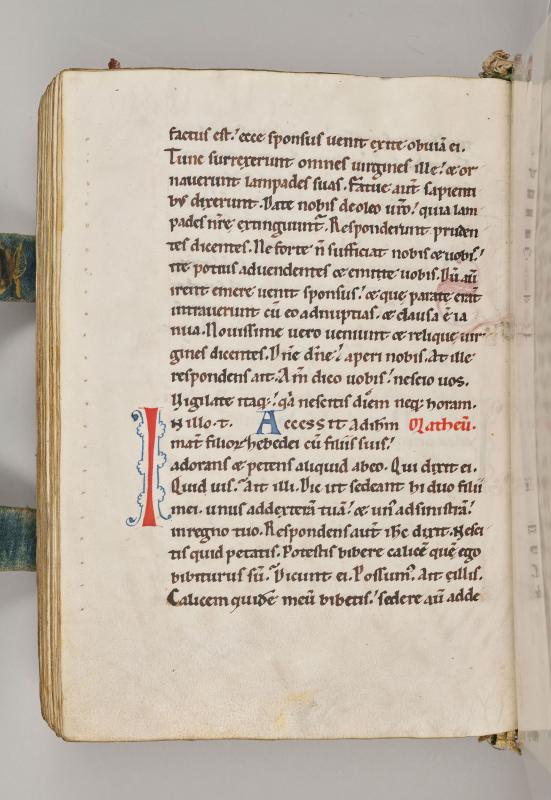 factus est. ecce sponsus uenit exite obuiā ei.
Tunc surrexerunt omnes uirgines ille. ⁊ or
nauerunt lampades suas. Fatue aūt sapienti
bus dixerunt. Date nobis de oleo uro. quia lam
pades nrē extinguunt. Responderunt pruden
tes dicentes. Ne forte n̄ sufficiat nobis ⁊ uobis.
ite potius ad uendentes ⁊ emite uobis. Dū aū
irent emere uenit sponsus. ⁊ que parate erāt
intrauerunt cū eo ad nuptias. ⁊ clausa ē ia
nua. Nouissime uero ueniunt ⁊ relique uir
gines dicentes. Dnē dnē. aperi nobis. At ille
respondens ait. Am̄ dico uobis. nescio uos.
Uigilate itaq; qa nescitis diem neq; horam.
In illo. t. Accessit ad ihm Matheū.
mat filiorꝝ zebedei cū filiis suis.
adorans ⁊ petens aliquid ab eo. Qui dixit ei.
Quid uis. Ait illi. Dic ut sedeant hi duo filii
mei. unus ad dexterā tuā. ⁊ un' ad sinistrā.
in regno tuo. Respondens aut ihc dixit. Nesci
tis quid petatis. Potestis bibere calicē quē ego
bibiturus sū. Dicunt ei. Possum'. Ait illis.
Calicem quidē meū bibetis. sedere aū adde